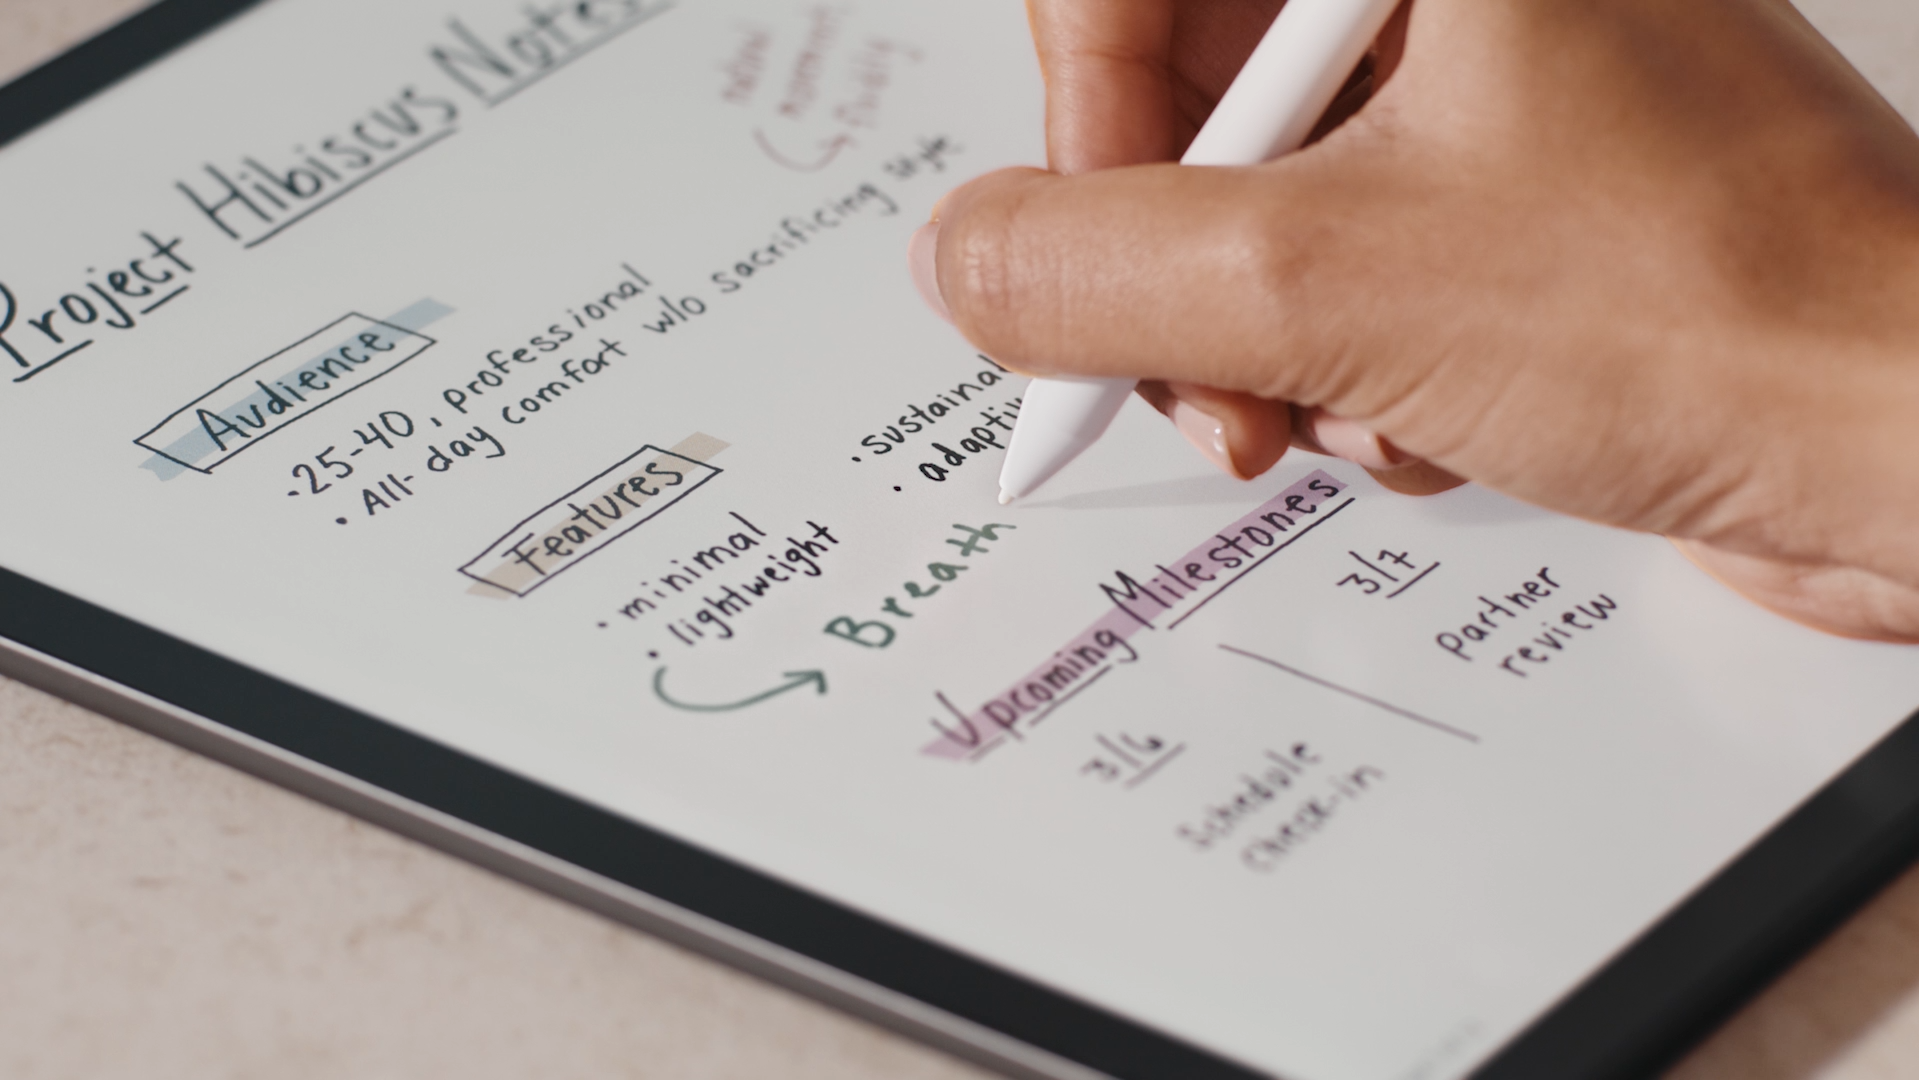 Project Hibiscus Notes
Audience
• 25-40, professional
• All-day comfort w/o sacrificing style
Features
• minimal
• lightweight
• sustainal
• adapti
Breath
Upcoming Milestones
3/6
Schedule
check-in
3/7
partner
review